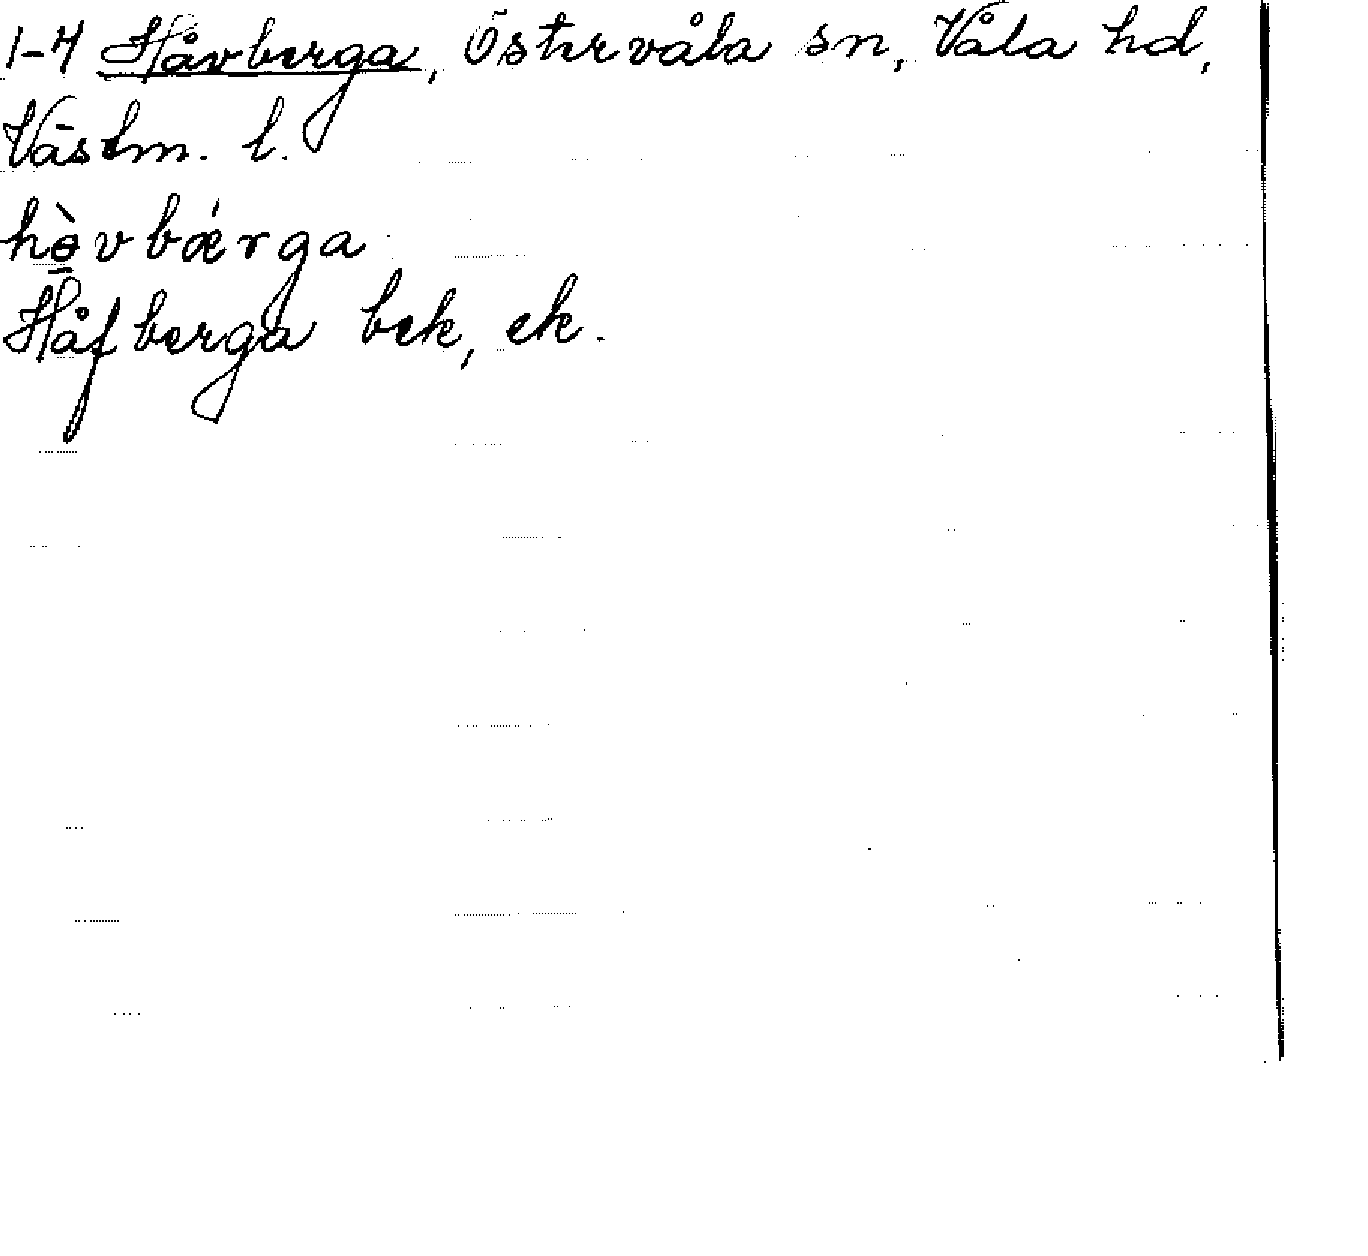 1-4 Håvberga, Östervåla sn, Våla hd,
Västm. l.
hə̱̀vbǽrga
Håfberga bek, ek.